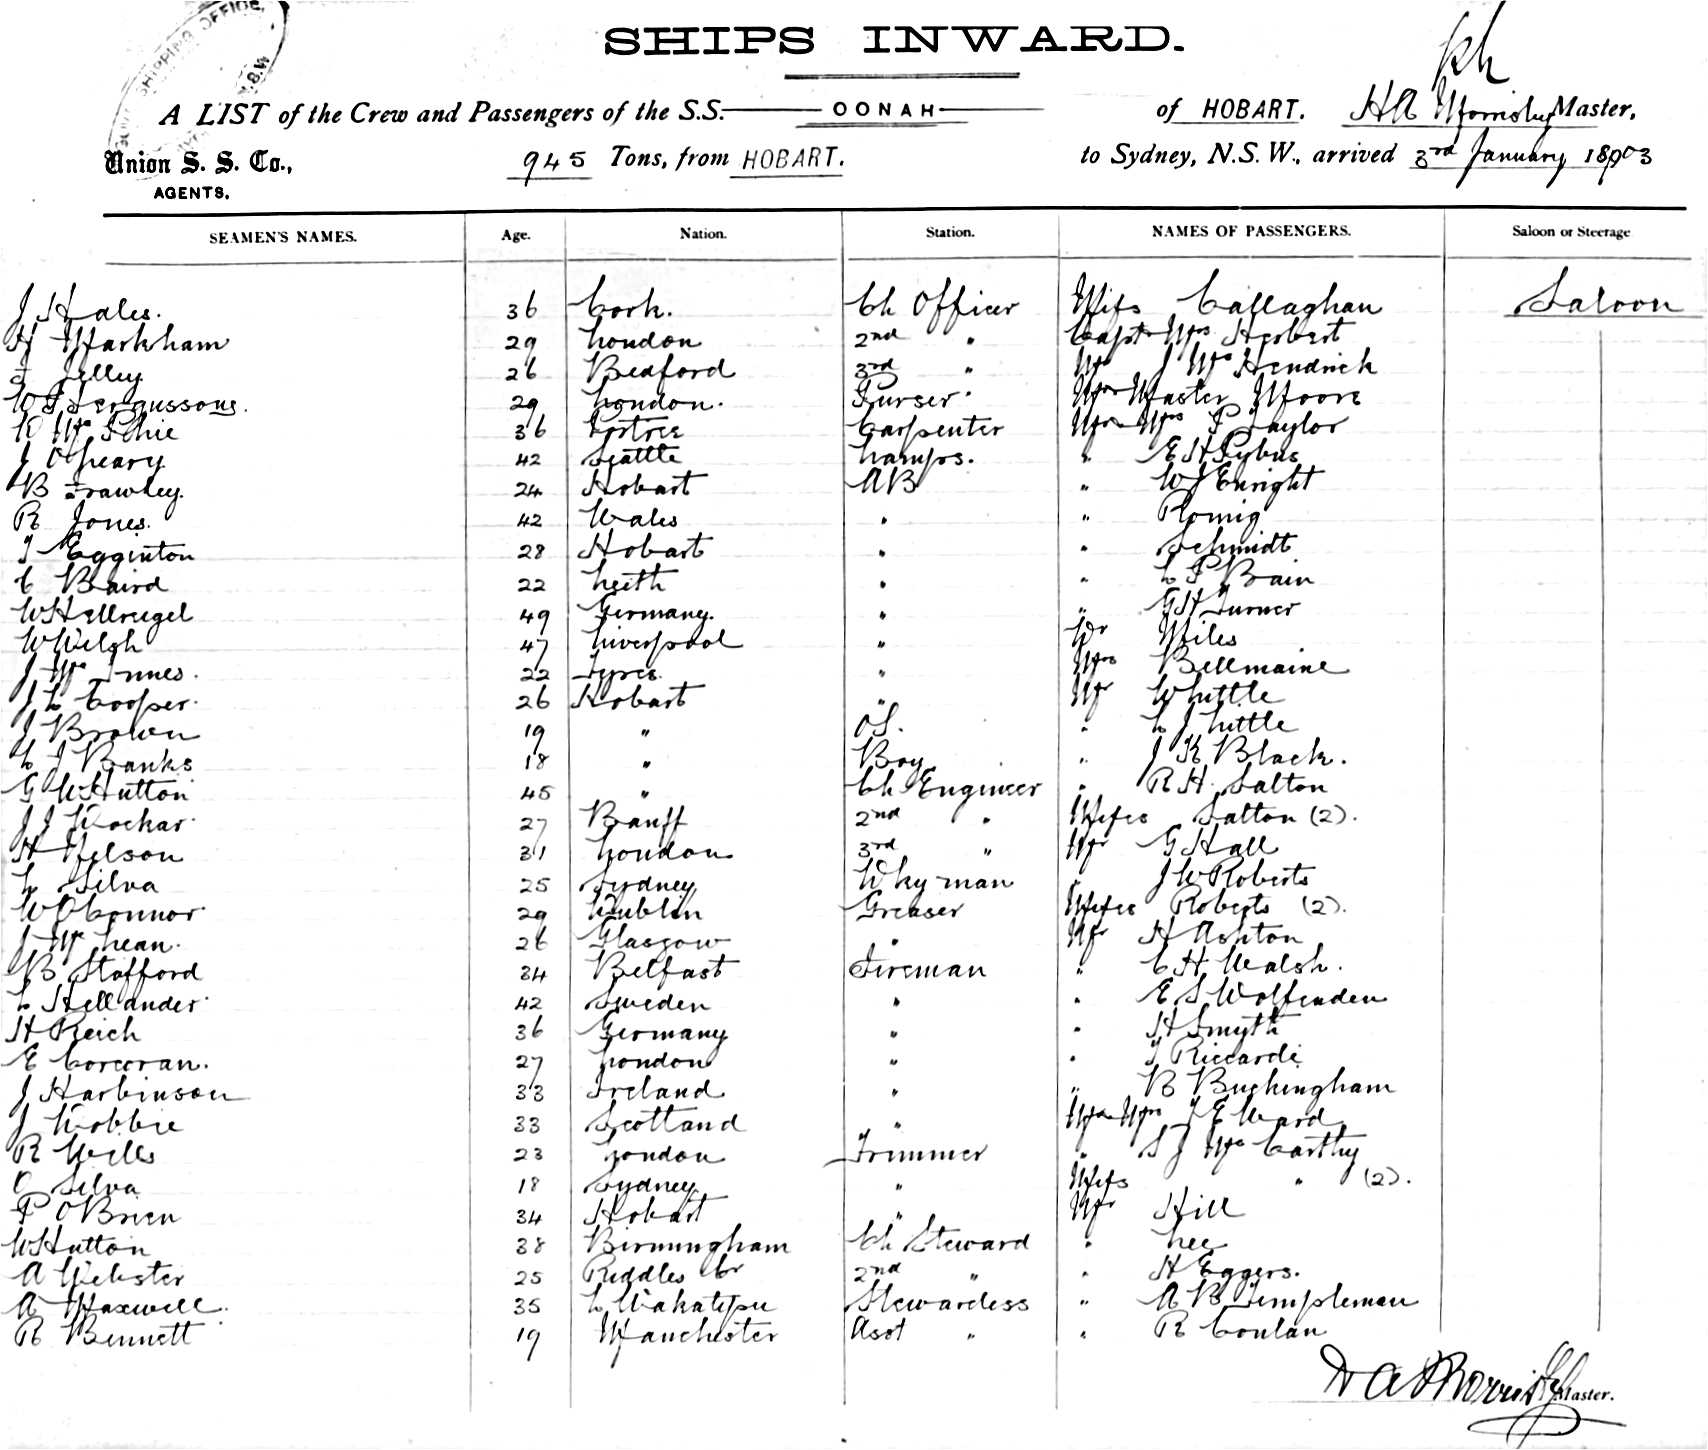 SHIPPING OFFICE,
N.S.W
SHIPS INWARD.
A LIST of the Crew and Passengers of the S.S. OONAH of HOBART. HA Morrisby Master,
Union S. S. Co., 945 Tons, from HOBART. to Sydney, N.S.W., arrived 3rd January 1903
AGENTS.
SEAMEN'S NAMES. Age. Nation. Station. NAMES OF PASSENGERS. Saloon or Steerage
J Hales. 36 Cork. Ch Officer Miss Callaghan Saloon
H Markham 29 London 2nd " Capt Mrs Herbert
J Jelley 26 Bedford 3rd " Mr J McHendrick
W J Fergussons. 29 London. Purser Mr Master Moore
D McPhie 36 Portree Carpenter Mr Mrs P Taylor
J O'Leary 42 Seattle Lamps. " E H Pybus
B Frawley. 24 Hobart AB " W J Enright
R Jones. 42 Wales " " Romig
T Egginton 28 Hobart " " Schmidt
C Baird 22 Leith " " L P Bain
W Hellreigel 49 Germany. " " G H Turner
W Welsh 47 Liverpool " Dr Miles
J McInnes. 22 Tyree " Mrs Bellmaine
J L Cooper. 26 Hobart " Mr Whittle
J Brown 19 " OS. " L J Little
L J Banks 18 " Boy " J K Black.
G W Hutton 45 " Ch Engineer " R H. Salton
J J Dockar 27 Banff 2nd " Misses Salton (2).
H Nelson 31 London 3rd " Mr G Hall
L Silva 25 Sydney Whyman " J W Roberts
W O'Connor 29 Dublin Greaser Misses Roberts (2).
J McLean. 26 Glasgow " Mr H Ashton
B Stafford 34 Belfast Fireman " C H Walsh.
L Hellander 42 Sweden " " E S Wolfenden
H Reich 36 Germany " " H Smyth
E Corcoran. 27 London " " T Riccardi
J Harbinson 33 Ireland " " B Buckingham
J Dobbie 33 Scotland " Mr Mrs J E Ward
R Wells 23 London Trimmer " S J McCarthy
O Silva 18 Sydney " Misses " (2).
P O'Brien 34 Hobart " Mr Hill
W Hutton 38 Birmingham Ch Steward " Lee
A Webster 25 Riddles Cr 2nd " " H Eggers.
A Maxwell. 35 L Wakatipu Stewardess " A B Templeman
R Bennett 19 Manchester Asst " " R Conlan
H A Morrisby Master.